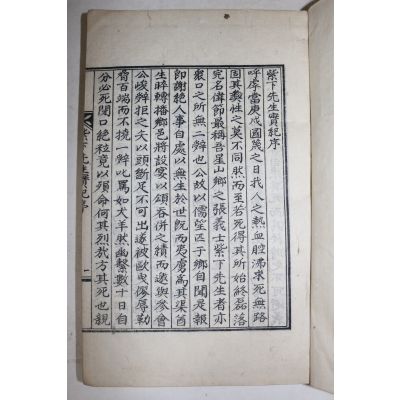 紫下先生實紀序
呼虖當庚戌國蔑之日我人之熱血腔沸求死無路
固其彝性之莫不同然而至若死得其所始終磊落
完名偉節最稱吾星山鄉之張義士紫下先生者亦
衆口之所無二辭也公故以儒望匹于鄉自聞是報
即謝絶人事自處以無生於世旣而夷虜爲其渠酋
生晬轉播鄉邑將設宴以頌吞併之績而邀與參會
公峻辭拒之又以頭斷足不可出遂被歐曳僇辱勒
脅百端而不撓一辭叱罵如犬羊然幽繫數十日自
分必死閉口絶粒竟以殞命何其烈哉方其死也親
紫下先生實紀序
一